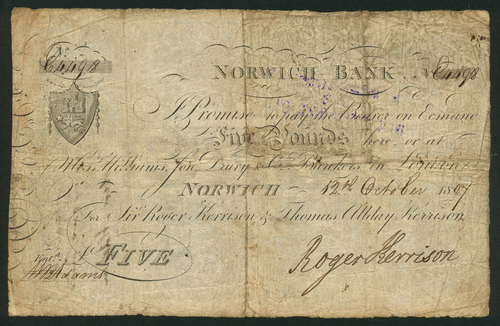 No. C4498
NORWICH BANK No. C4498
I Promise to pay the Bearer on Demand
Five Pounds here, or at
Mess.rs Williams, Son, Drury & Co. Bankers in London
NORWICH 12th October 1807
For Sir Roger Kerrison & Thomas Allday Kerrison
£ FIVE
Roger Kerrison
Ent.d